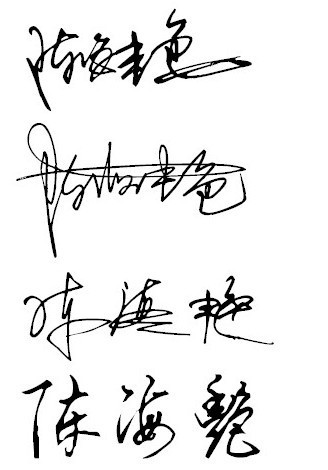 陈海艳
陈海艳
陈海艳
陈海艷